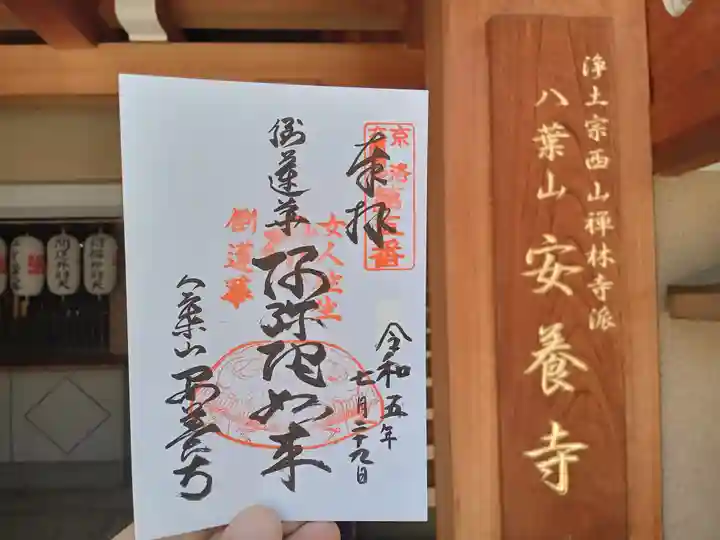 浄土宗西山禅林寺派
八葉山 安養寺
奉拝
倒蓮華
阿弥陀如来
八葉山 安養寺
令和五年
七月二十九日
女人往生
倒蓮華